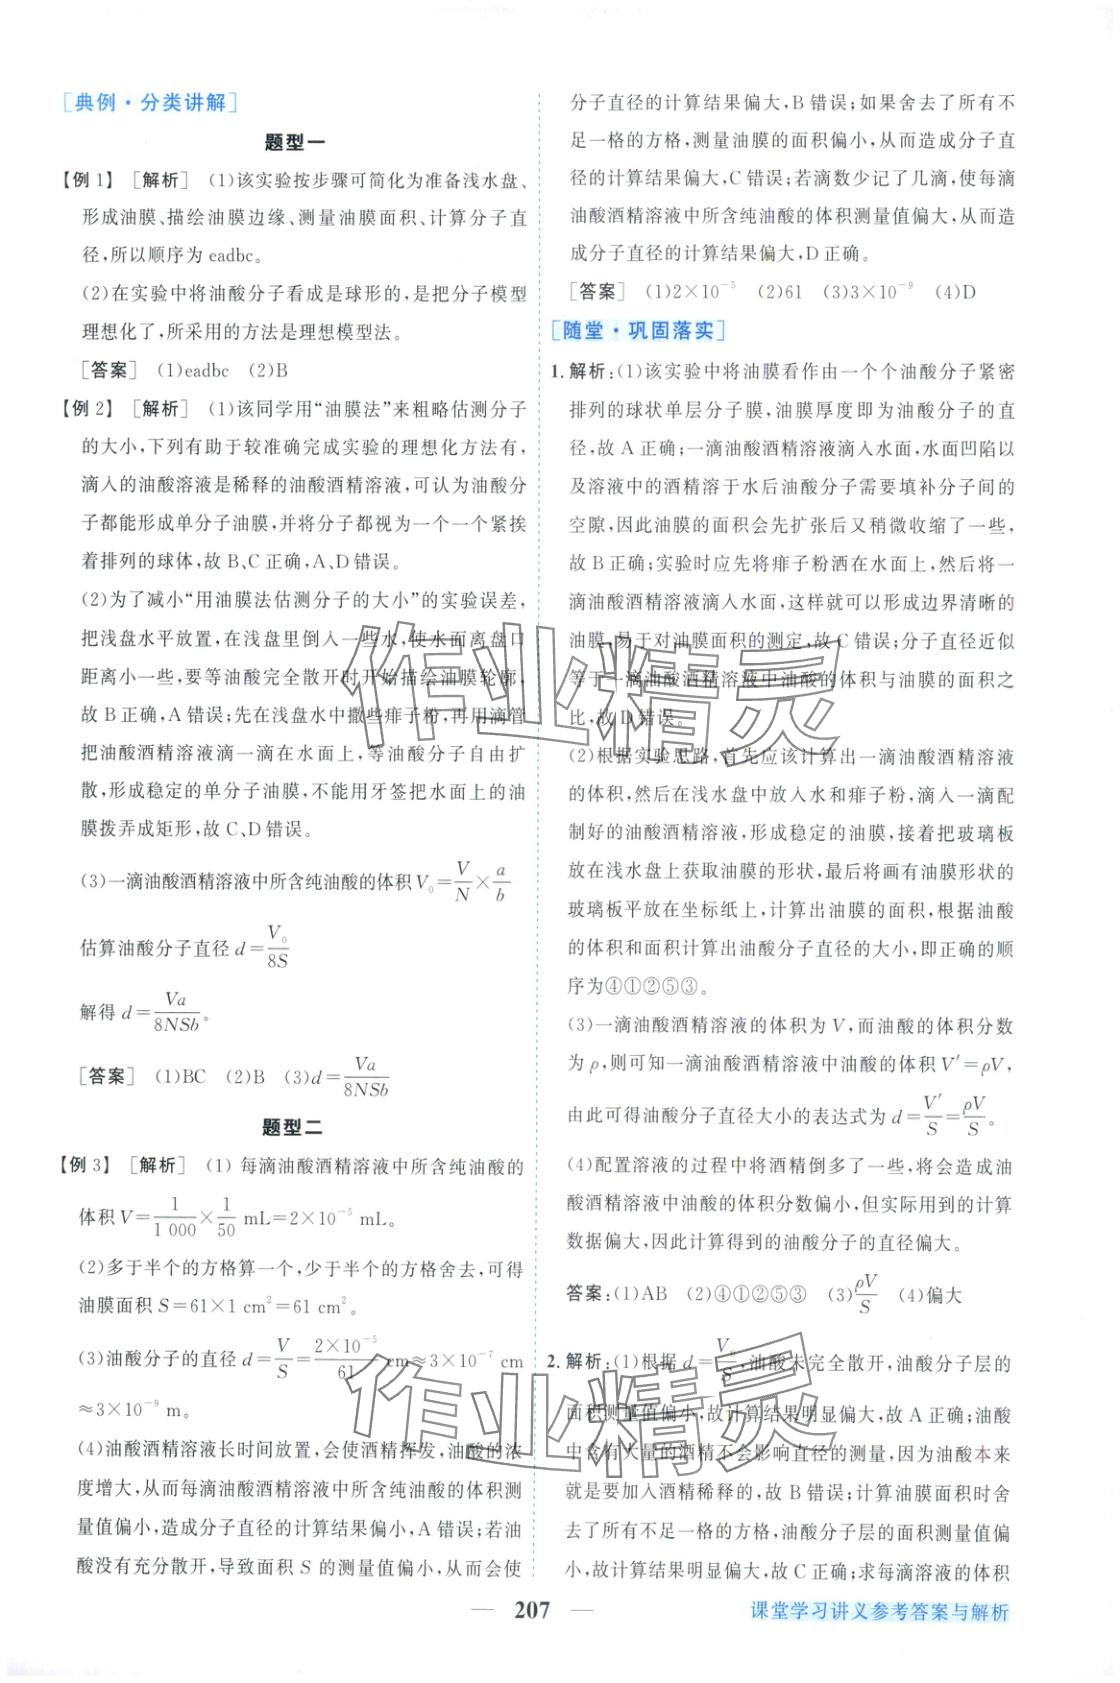 [典例·分类讲解]
题型一
【例1】 [解析] (1)该实验按步骤可简化为准备浅水盘、
形成油膜、描绘油膜边缘、测量油膜面积、计算分子直
径,所以顺序为eadbc。
(2)在实验中将油酸分子看成是球形的,是把分子模型
理想化了,所采用的方法是理想模型法。
[答案] (1)eadbc (2)B
【例2】 [解析] (1)该同学用“油膜法”来粗略估测分子
的大小,下列有助于较准确完成实验的理想化方法有,
滴入的油酸溶液是稀释的油酸酒精溶液,可认为油酸分
子都能形成单分子油膜,并将分子都视为一个一个紧挨
着排列的球体,故B、C正确,A、D错误。
(2)为了减小“用油膜法估测分子的大小”的实验误差,
把浅盘水平放置,在浅盘里倒入一些水,使水面离盘口
距离小一些,要等油酸完全散开时开始描绘油膜轮廓,
故B正确,A错误;先在浅盘水中撒些痱子粉,再用滴管
把油酸酒精溶液滴一滴在水面上,等油酸分子自由扩
散,形成稳定的单分子油膜,不能用牙签把水面上的油
膜拨弄成矩形,故C、D错误。
(3)一滴油酸酒精溶液中所含纯油酸的体积V₀=V/N×a/b
估算油酸分子直径d=V₀/8S
解得d=Va/8NSb。
[答案] (1)BC (2)B (3)d=Va/8NSb
题型二
【例3】 [解析] (1)每滴油酸酒精溶液中所含纯油酸的
体积V=1/1 000×1/50 mL=2×10⁻⁵ mL。
(2)多于半个的方格算一个,少于半个的方格舍去,可得
油膜面积S=61×1 cm²=61 cm²。
(3)油酸分子的直径d=V/S=2×10⁻⁵/61 cm≈3×10⁻⁷ cm
≈3×10⁻⁹ m。
(4)油酸酒精溶液长时间放置,会使酒精挥发,油酸的浓
度增大,从而使每滴油酸酒精溶液中所含纯油酸的体积测
量值偏小,造成分子直径的计算结果偏小,A错误;若油
酸没有充分散开,导致面积S的测量值偏小,从而会使
分子直径的计算结果偏大,B错误;如果舍去了所有不
足一格的方格,测量油膜的面积偏小,从而造成分子直
径的计算结果偏大,C错误;若滴数少记了几滴,使每滴
油酸酒精溶液中所含纯油酸的体积测量值偏大,从而造
成分子直径的计算结果偏大,D正确。
[答案] (1)2×10⁻⁵ (2)61 (3)3×10⁻⁹ (4)D
[随堂·巩固落实]
1.解析:(1)该实验中将油膜看作由一个个油酸分子紧密
排列的球状单层分子膜,油膜厚度即为油酸分子的直
径,故A正确;一滴油酸酒精溶液滴入水面,水面凹陷以
及溶液中的酒精溶于水后油酸分子需要填补分子间的
空隙,因此油膜的面积会先扩张后又稍微收缩了一些,
故B正确;实验时应先将痱子粉洒在水面上,然后将一
滴油酸酒精溶液滴入水面,这样就可以形成边界清晰的
油膜,易于对油膜面积的测定,故C错误;分子直径近似
等于一滴油酸酒精溶液中油酸的体积与油膜的面积之
比,故D错误。
(2)根据实验思路,首先应该计算出一滴油酸酒精溶液
的体积,然后在浅水盘中放入水和痱子粉,滴入一滴配
制好的油酸酒精溶液,形成稳定的油膜,接着把玻璃板
放在浅水盘上获取油膜的形状,最后将画有油膜形状的
玻璃板平放在坐标纸上,计算出油膜的面积,根据油酸
的体积和面积计算出油酸分子直径的大小,即正确的顺
序为④①②⑤③。
(3)一滴油酸酒精溶液的体积为V,而油酸的体积分数
为ρ,则可知一滴油酸酒精溶液中油酸的体积V′=ρV,
由此可得油酸分子直径大小的表达式为d=V′/S=ρV/S。
(4)配置溶液的过程中将酒精倒多了一些,将会造成油
酸酒精溶液中油酸的体积分数偏小,但实际用到的计算
数据偏大,因此计算得到的油酸分子的直径偏大。
答案:(1)AB (2)④①②⑤③ (3)ρV/S (4)偏大
2.解析:(1)根据d=V₀/S,油酸未完全散开,油酸分子层的
面积测量值偏小,故计算结果明显偏大,故A正确;油酸
中含有大量的酒精不会影响直径的测量,因为油酸本来
就是要加入酒精稀释的,故B错误;计算油膜面积时舍
去了所有不足一格的方格,油酸分子层的面积测量值偏
小,故计算结果明显偏大,故C正确;求每滴溶液的体积
作业精灵
作业精灵
— 207 —
课堂学习讲义参考答案与解析